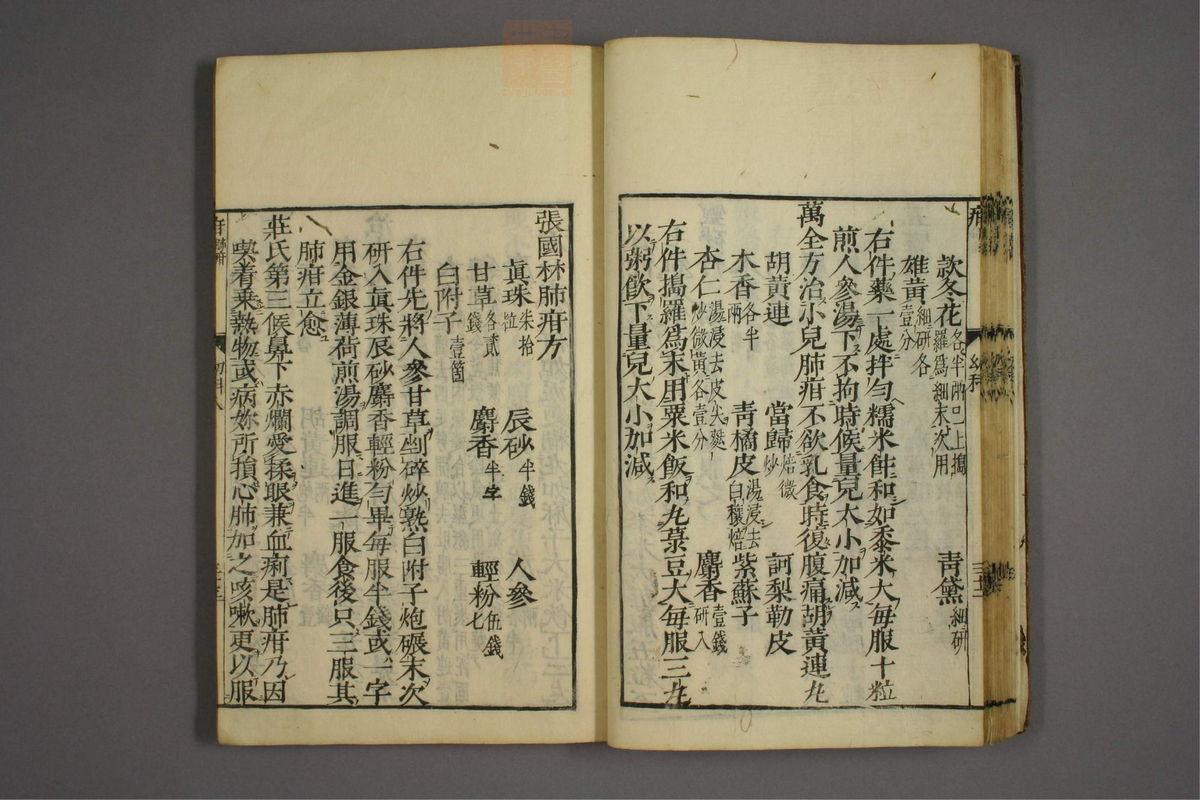 疳
幼科
三十二
款冬花各半兩已上搗羅爲細末次用 青黛細研
雄黃細研各壹分
右件藥一處拌勻糯米飪和如黍米大每服十粒
煎人參湯下不拘時候量兒大小加減
萬全方治小兒肺疳不欲乳食時復腹痛胡黃連丸
胡黃連 當歸焙微炒 訶梨勒皮
木香各半兩 青橘皮湯浸去白穰焙 紫蘇子
杏仁湯浸去皮尖麩炒微黃各壹分 麝香壹錢研入
右件搗羅爲末用粟米飯和丸菉豆大每服三丸
以粥飲下量兒大小加減
張國林肺疳方
眞珠朱拾粒 辰砂半錢 人參
甘草各貳錢 麝香半字 輕粉伍錢匕
白附子壹箇
右件先將人參甘草剉碎炒熟白附子炮碾末次
研入眞珠辰砂麝香輕粉勻畢每服半錢或一字
用金銀薄荷煎湯調服日進一服食後只三服其
肺疳立愈
莊氏第三候鼻下赤爛愛揉眼兼血痢是肺疳乃因
喫着乘熱物或病妳所損心肺加之咳嗽更以服